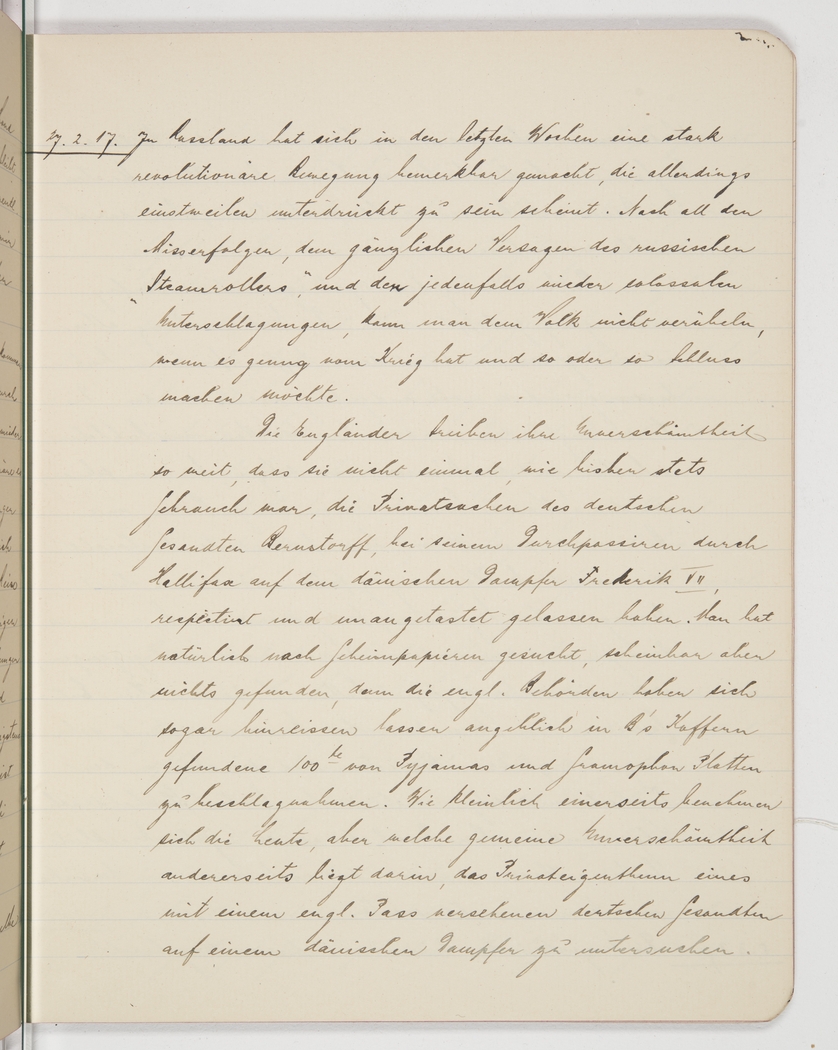 27. 2. 17. In Russland hat sich in den letzten Wochen eine stark
revolutionäre Bewegung bemerkbar gemacht, die allerdings
einstweilen unterdrückt zu sein scheint. Nach all den
Misserfolgen, dem gänzlichen Versagen des russischen
„Steamrollers", und den jedenfalls wieder colossalen
Unterschlagungen, kann man dem Volk nicht verübeln,
wenn es genug vom Krieg hat und so oder so Schluss
machen möchte.
Die Engländer treiben ihre Unverschämtheit
so weit, dass sie nicht einmal, wie bisher stets
Gebrauch war, die Privatsachen des deutschen
Gesandten Bernstorff, bei seinem Durchpassiren durch
Hallifax auf dem dänischen Dampfer Frederik VII,
respectirt und unangetastet gelassen haben. Man hat
natürlich nach Geheimpapieren gesucht, scheinbar aber
nichts gefunden, denn die engl. Behörden haben sich
sogar hinreissen lassen angeblich in B's Koffern
gefundene 100te von Pyjamas und Gramophon Platten
zu beschlagnahmen. Wie kleinlich einerseits benehmen
sich die Leute, aber welche gemeine Unverschämtheit
andererseits liegt darin, das Privateigenthum eines
mit einem engl. Pass versehenen deutschen Gesandten
auf einem dänischen Dampfer zu untersuchen.